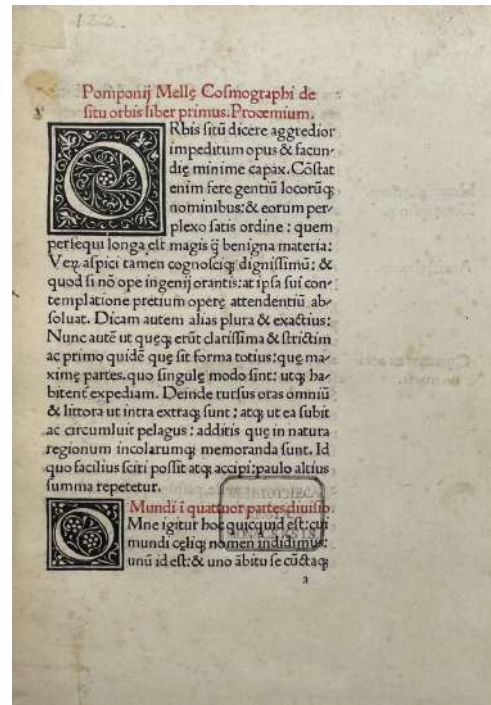 Pomponij Mellę Coſmographi de
ſitu orbis liber primus. Prooemium.
ORbis ſitū dicere aggredior
impeditum opus & facun-
dię minime capax. Cōſtat
enim fere gentiū locorūq;
nominibus: & eorum per-
plexo ſatis ordine: quem
perſequi longa eſt magis q̄ benigna materia:
Veꝝ aſpici tamen cognoſciq; digniſſimū: &
quod ſi nō ope ingenij orantis: at ipſa ſui con-
templatione pretium operę attendentiū ab-
ſoluat. Dicam autem alias plura & exactius:
Nunc autē ut quęq; erūt clariſſima & ſtrictim
ac primo quidē quę ſit forma totius: quę ma-
ximę partes. quo ſingulę modo ſint: utq; ha-
bitent expediam. Deinde rurſus oras omniū
& littora ut intra extraq; ſunt: atq; ut ea ſubit
ac circumluit pelagus: additis quę in natura
regionum incolarumq; memoranda ſunt. Id
quo facilius ſciri poſſit atq; accipi: paulo altius
ſumma repetetur.
Mundi ī quattuor partes diuiſio.
OMne igitur hoc quicquid eſt: cui
mundi cęliq; nomen indidimus:
unū id eſt: & uno ābitu ſe cūctaq;
a